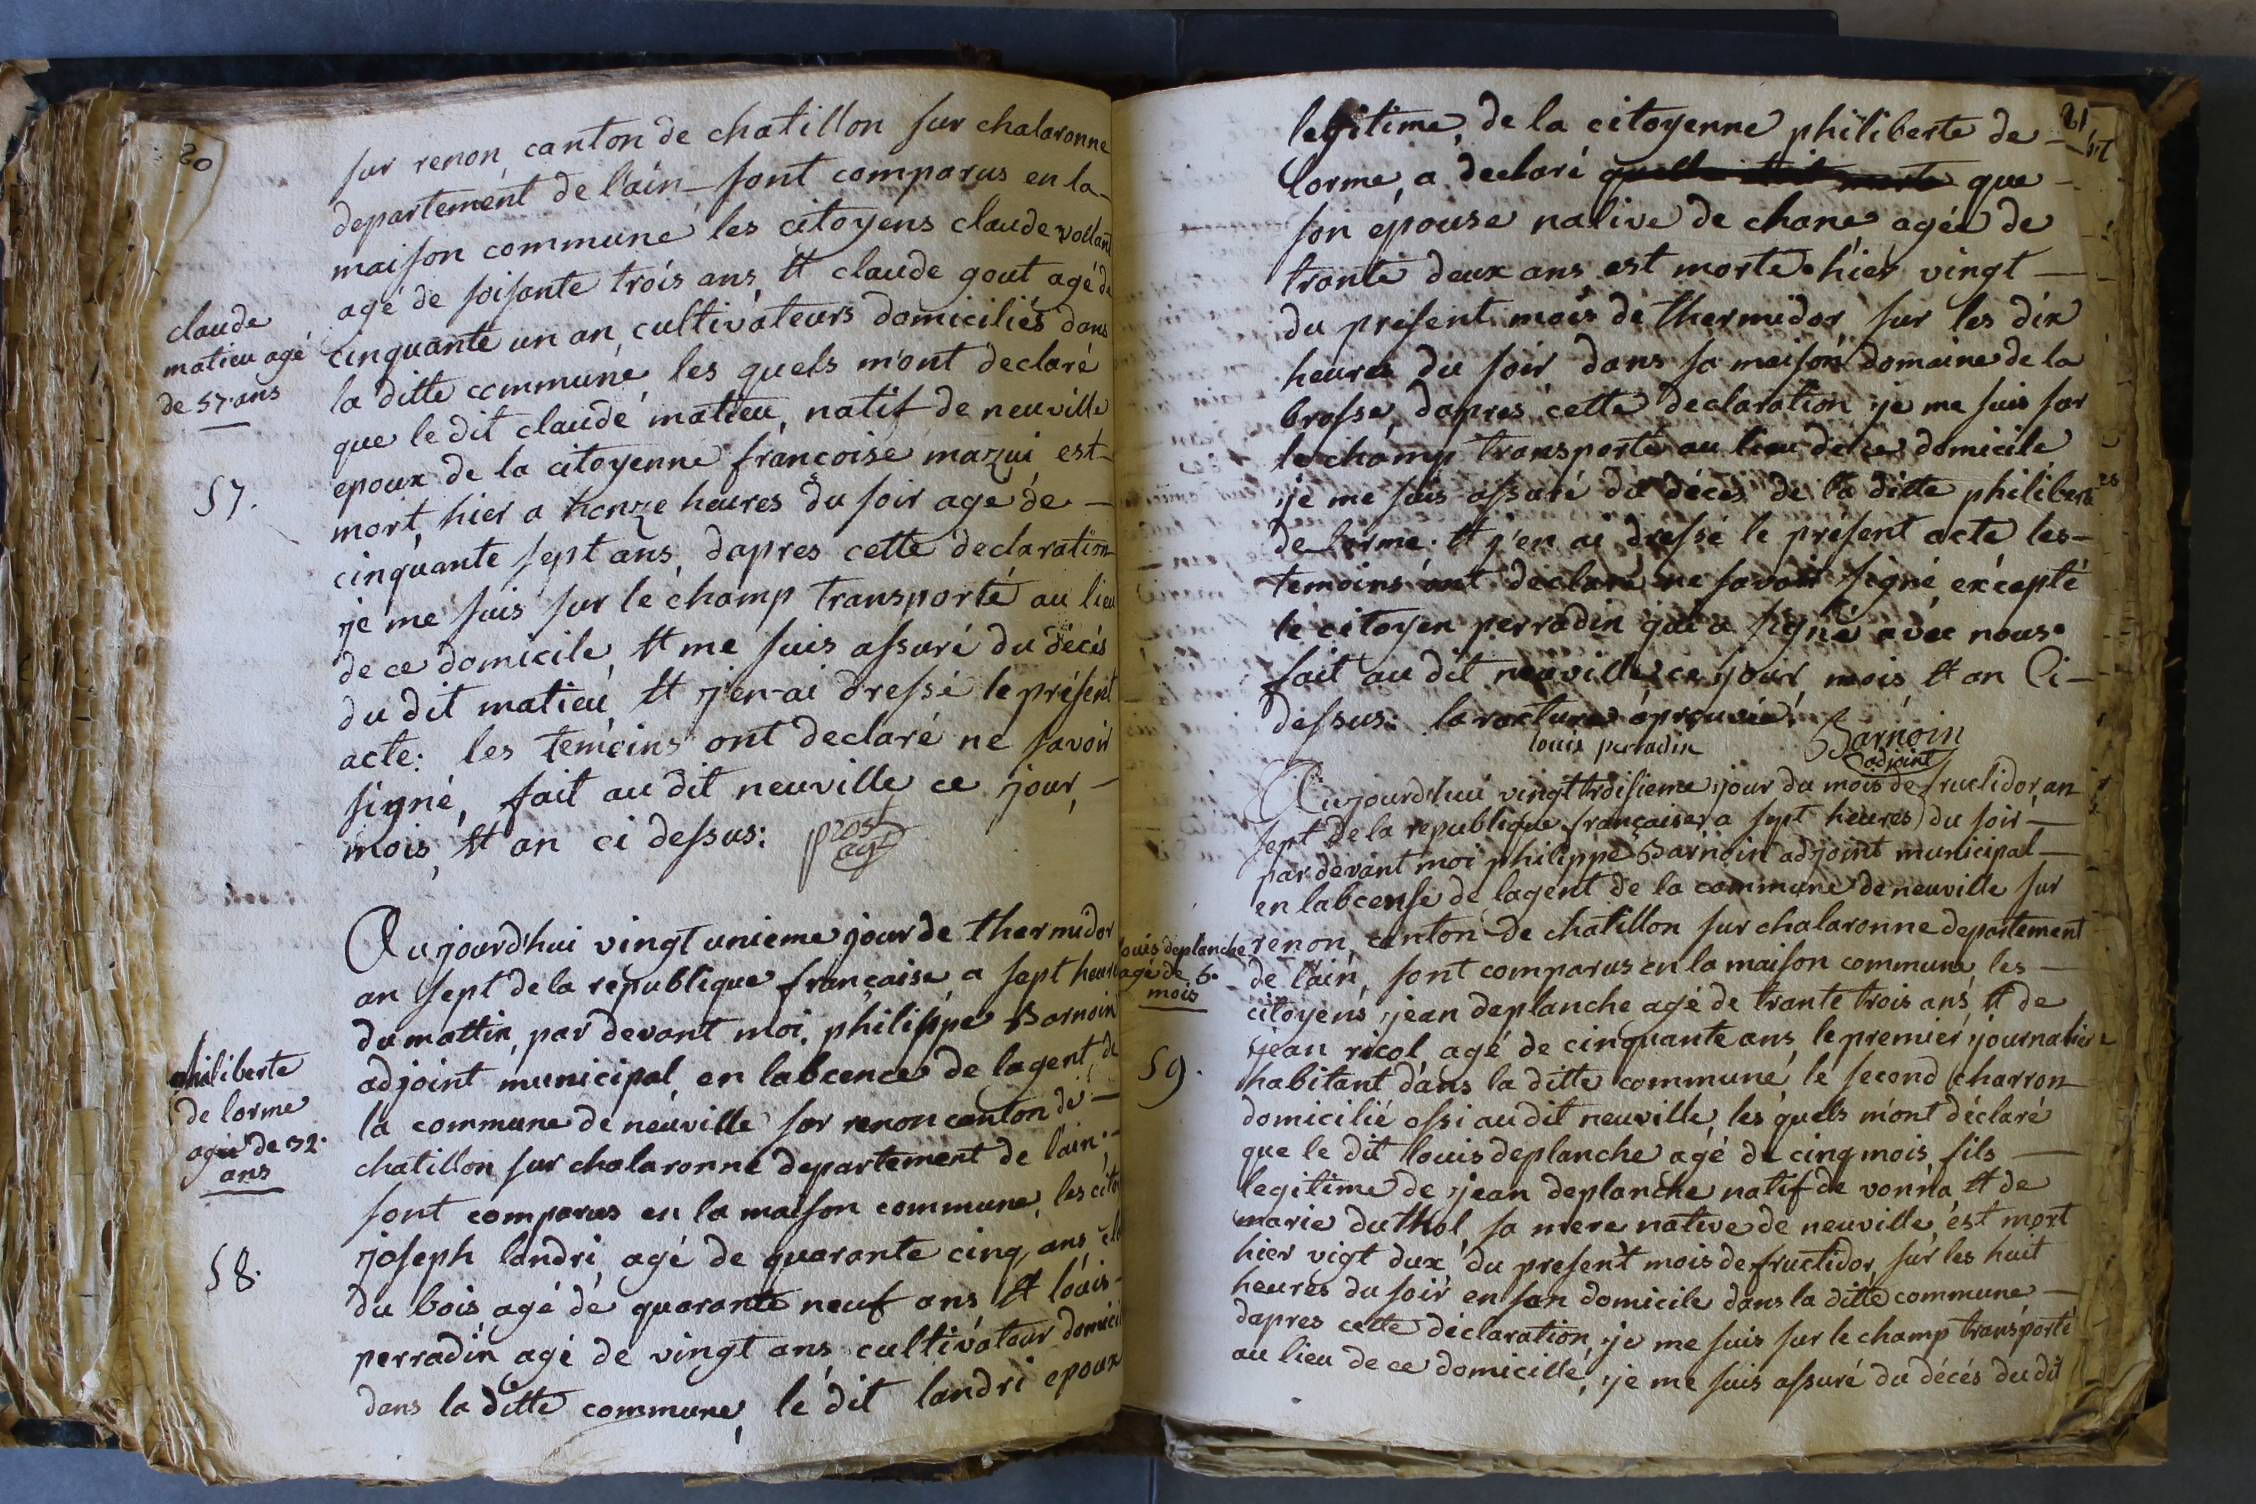 20
sur renon, canton de chatillon sur chalaronne
departement de l'ain sont comparus en la
maison commune les citoyens claude vollant
agé de soisante trois ans, et claude gout agé de
cinquante un an, cultivateurs domiciliés dans
la ditte commune, les quels m'ont declaré
que le dit claude matieu, natif de neuville
epoux de la citoyenne francoise mazui est
mort, hier a honze heures du soir agé de
cinquante sept ans, dapres cette declaration
je me suis sur le champ transporté au lieu
de ce domicile, et me suis assuré du décés
du dit matieu, et j'en ai dressé le présent
acte: les temoins ont declaré ne savoir
signé, fait au dit neuville ce jour,
mois, et an ci dessus:
prost
agt
claude
matieu agé
de 57 ans
57.
Aujourd'hui vingt unieme jour de thermidor
an sept de la republique française a sept heures
du mattin, par devant moi, philippe Barnoin
adjoint municipal en labcence de lagent de
la commune de neuville sur renon canton de
chatillon sur chalaronne departement de l'ain,
sont comparus en la maison commune, les
joseph landri agé de quarante cinq ans
du bois agé de quarante neuf ans et louis
perradin agé de vingt ans cultivateur
dans la ditte commune, le dit landri epoux
philiberte
de lorme
agée de 32.
ans
58.
21
legitime, de la citoyenne philiberte de
lorme, a declaré que
son épouse native de chane agée de
trante deux ans est morte hier vingt
du present mois de thermidor sur les dix
heures du soir dans sa maison domaine de la
brosse, dapres cette declaration je me suis sur
le champ transporté au lieu de ce domicile
je me suis assuré du déces de la ditte philiberte
de lorme. et j'en ai dressé le présent acte les
temoins ont declaré ne savoir signé, excepté
le citoyen perradin qui a signé avec nous.
fait au dit neuville ce jour, mois, et an Ci
dessus: la rature aprouvée.
louis perradin
Barnoin
adjoint
Aujourd'hui vingt troisieme jour du mois de fructidor, an
sept de la republique française, a sept heures du soir
par devant moi philippe Barnoin adjoint municipal
en labcense de lagent de la commune de neuville sur
renon, canton de chatillon sur chalaronne departement
de l'ain, sont comparus en la maison commune les
citoyens jean deplanche agé de trante trois ans, et de
jean ricol, agé de cinquante ans, le premier journalier
habitant dans la ditte commune, le second charron
domicilié ossi au dit neuville, les quels m'ont déclaré
que le dit louis deplanche agé de cinq mois fils
legitime de jean deplanche natif de vonna et de
marie duthol, sa mere native de neuville, est mort
hier vigt dux du present mois de fructidor, sur les huit
heures du soir en son domicile dans la ditte commune
dapres cette déclaration, je me suis sur le champ transporté
au lieu de ce domicille, je me suis assuré du décés du dit
louis deplanche
agé de 5.
mois
59.